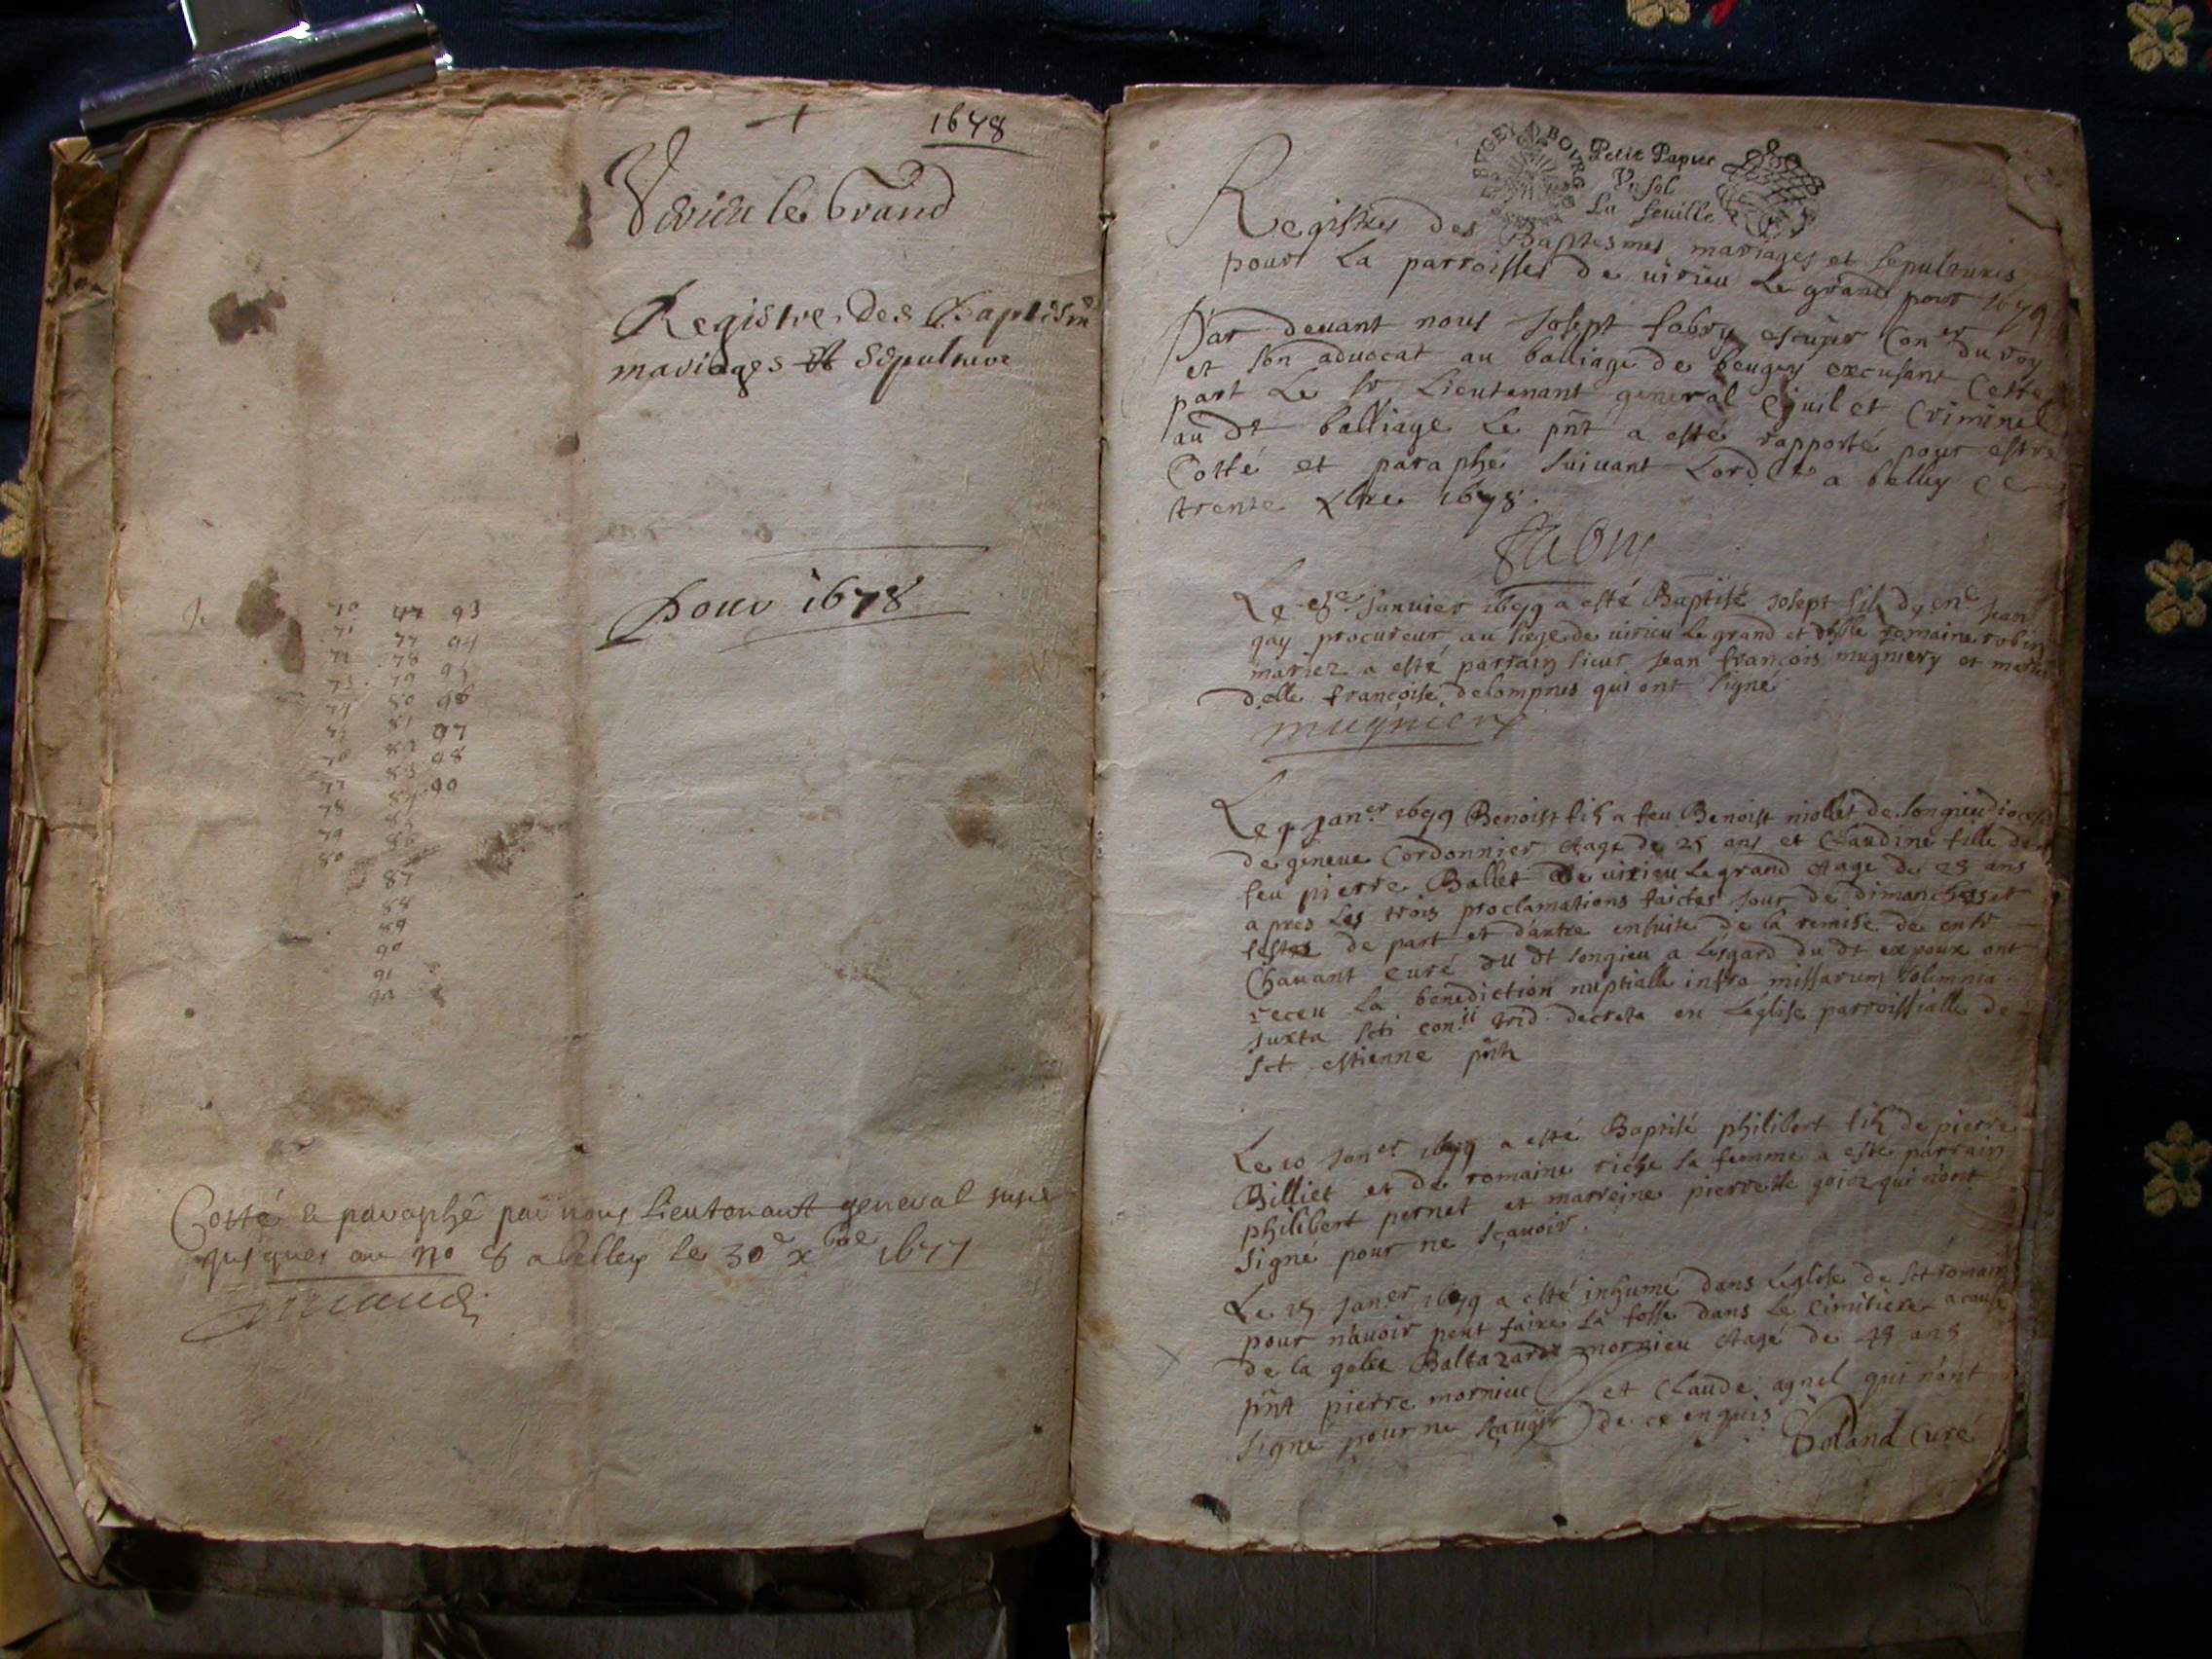 1678
Virieu le Grand
Registre des Baptism
mariages et Sepulture
pour 1678
70 77 93
71 77 94
72 78 95
73 79 96
74 80 98
81 97
82 98
83 90
77 84
78 85
79 86
80
87
88
89
90
91
92
Cotté & paraphé par nous Lieutenant general
jusques au no 8 a belley le 30e xbre 1677
BVGEY BOVRG
Petit Papier
Vn sol
La feuille
Registres des Baptesmes mariages et sepultures
pour La parroisses de uirieu Le grand pour 1679
Par deuant nous Josept fabry escuyer Coner du roy
et son aduocat au balliage de beugey excusant Cette
part Le sr Lieutenant general Ciuil et Criminel
au dt balliage Le pnt a esté rapporté pour estre
Cotté et paraphé suiuant Lordce a belley ce
trente xbre 1678.
fabry
Le 8e Januier 1679 a esté Baptisé Josept fils de me Jean
gay procureur au siege de uirieu Le grand et dlle romaine robin
mariez a esté parrain sieur Jean francois mugniery et mar
delle françoise delompnes qui ont signé
mugniery
Le 9 Janer 1679 Benoist fils a feu Benoist niollet de songieu diocese
de geneue Cordonnier Aagé de 25 ans et Claudine fille de
feu pierre Ballet de uirieu Le grand Aage de 28 ans
apres Les trois proclamations faictes jour de dimanches et
festes de part et dautre ensuite de la remise de
Chauant curé du dt songieu a Lesgard du dt expoux ont
receu La benediction nuptialle infra missarum solemnia
juxta scti conii trid. decreta en Leglise parroissialle de
sct estienne pnts
Le 10 Janer 1679 a esté Baptisé philibert fils de pierre
Billiet et de romaine riche sa femme a este parrain
philibert pernet et marreine pierrette qui nont
signé pour ne sçauoir.
Le 15 Janer 1679 a esté inhumé dans Leglise de sct romain
pour nauoir peut faire La fosse dans Le cimitiere a cause
de la gelée Baltazard mornieu Aagé de 48 ans
pnt pierre mornieu et Claude agnel qui nont
signé pour ne sçauoir de ce enquis
Boland Curé